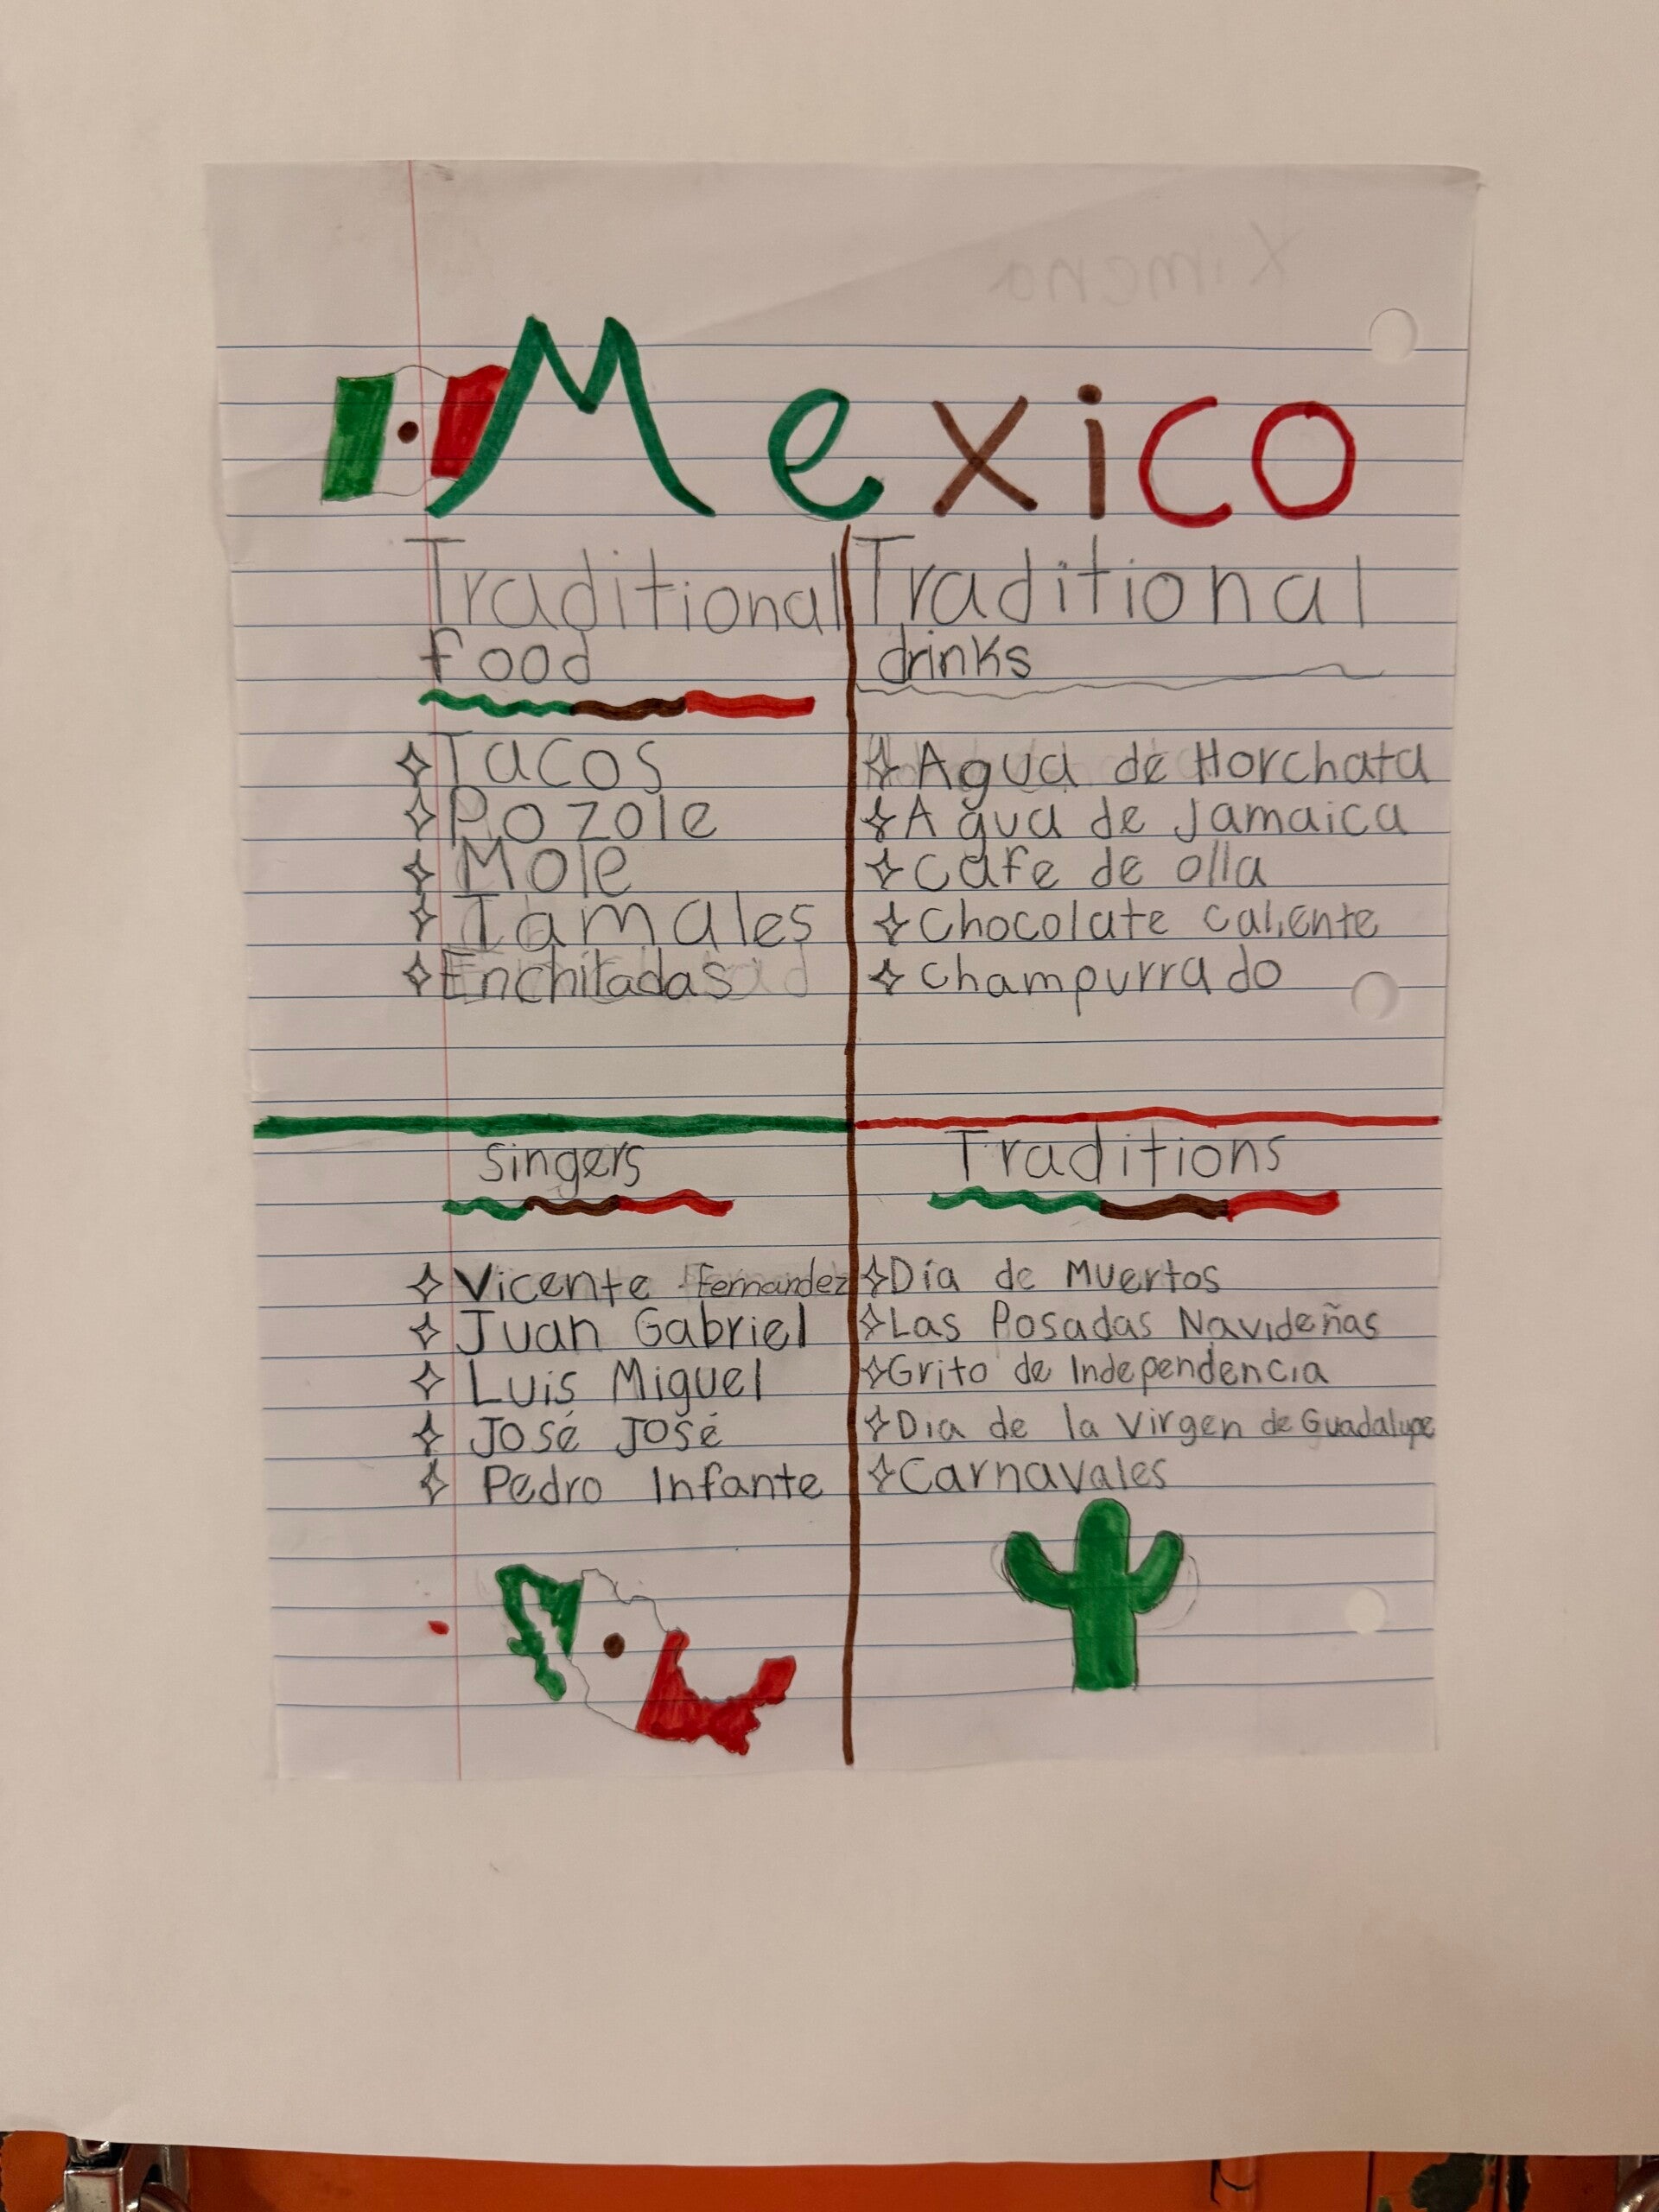 Ximena
Mexico
Traditional
food
✧Tacos
✧Pozole
✧Mole
✧Tamales
✧Enchiladas
Traditional
drinks
✧Agua de Horchata
✧Agua de Jamaica
✧Cafe de olla
✧Chocolate caliente
✧Champurrado
Singers
✧Vicente Fernandez
✧Juan Gabriel
✧Luis Miguel
✧José José
✧Pedro Infante
Traditions
✧Día de Muertos
✧Las Posadas Navideñas
✧Grito de Independencia
✧Dia de la Virgen de Guadalupe
✧Carnavales